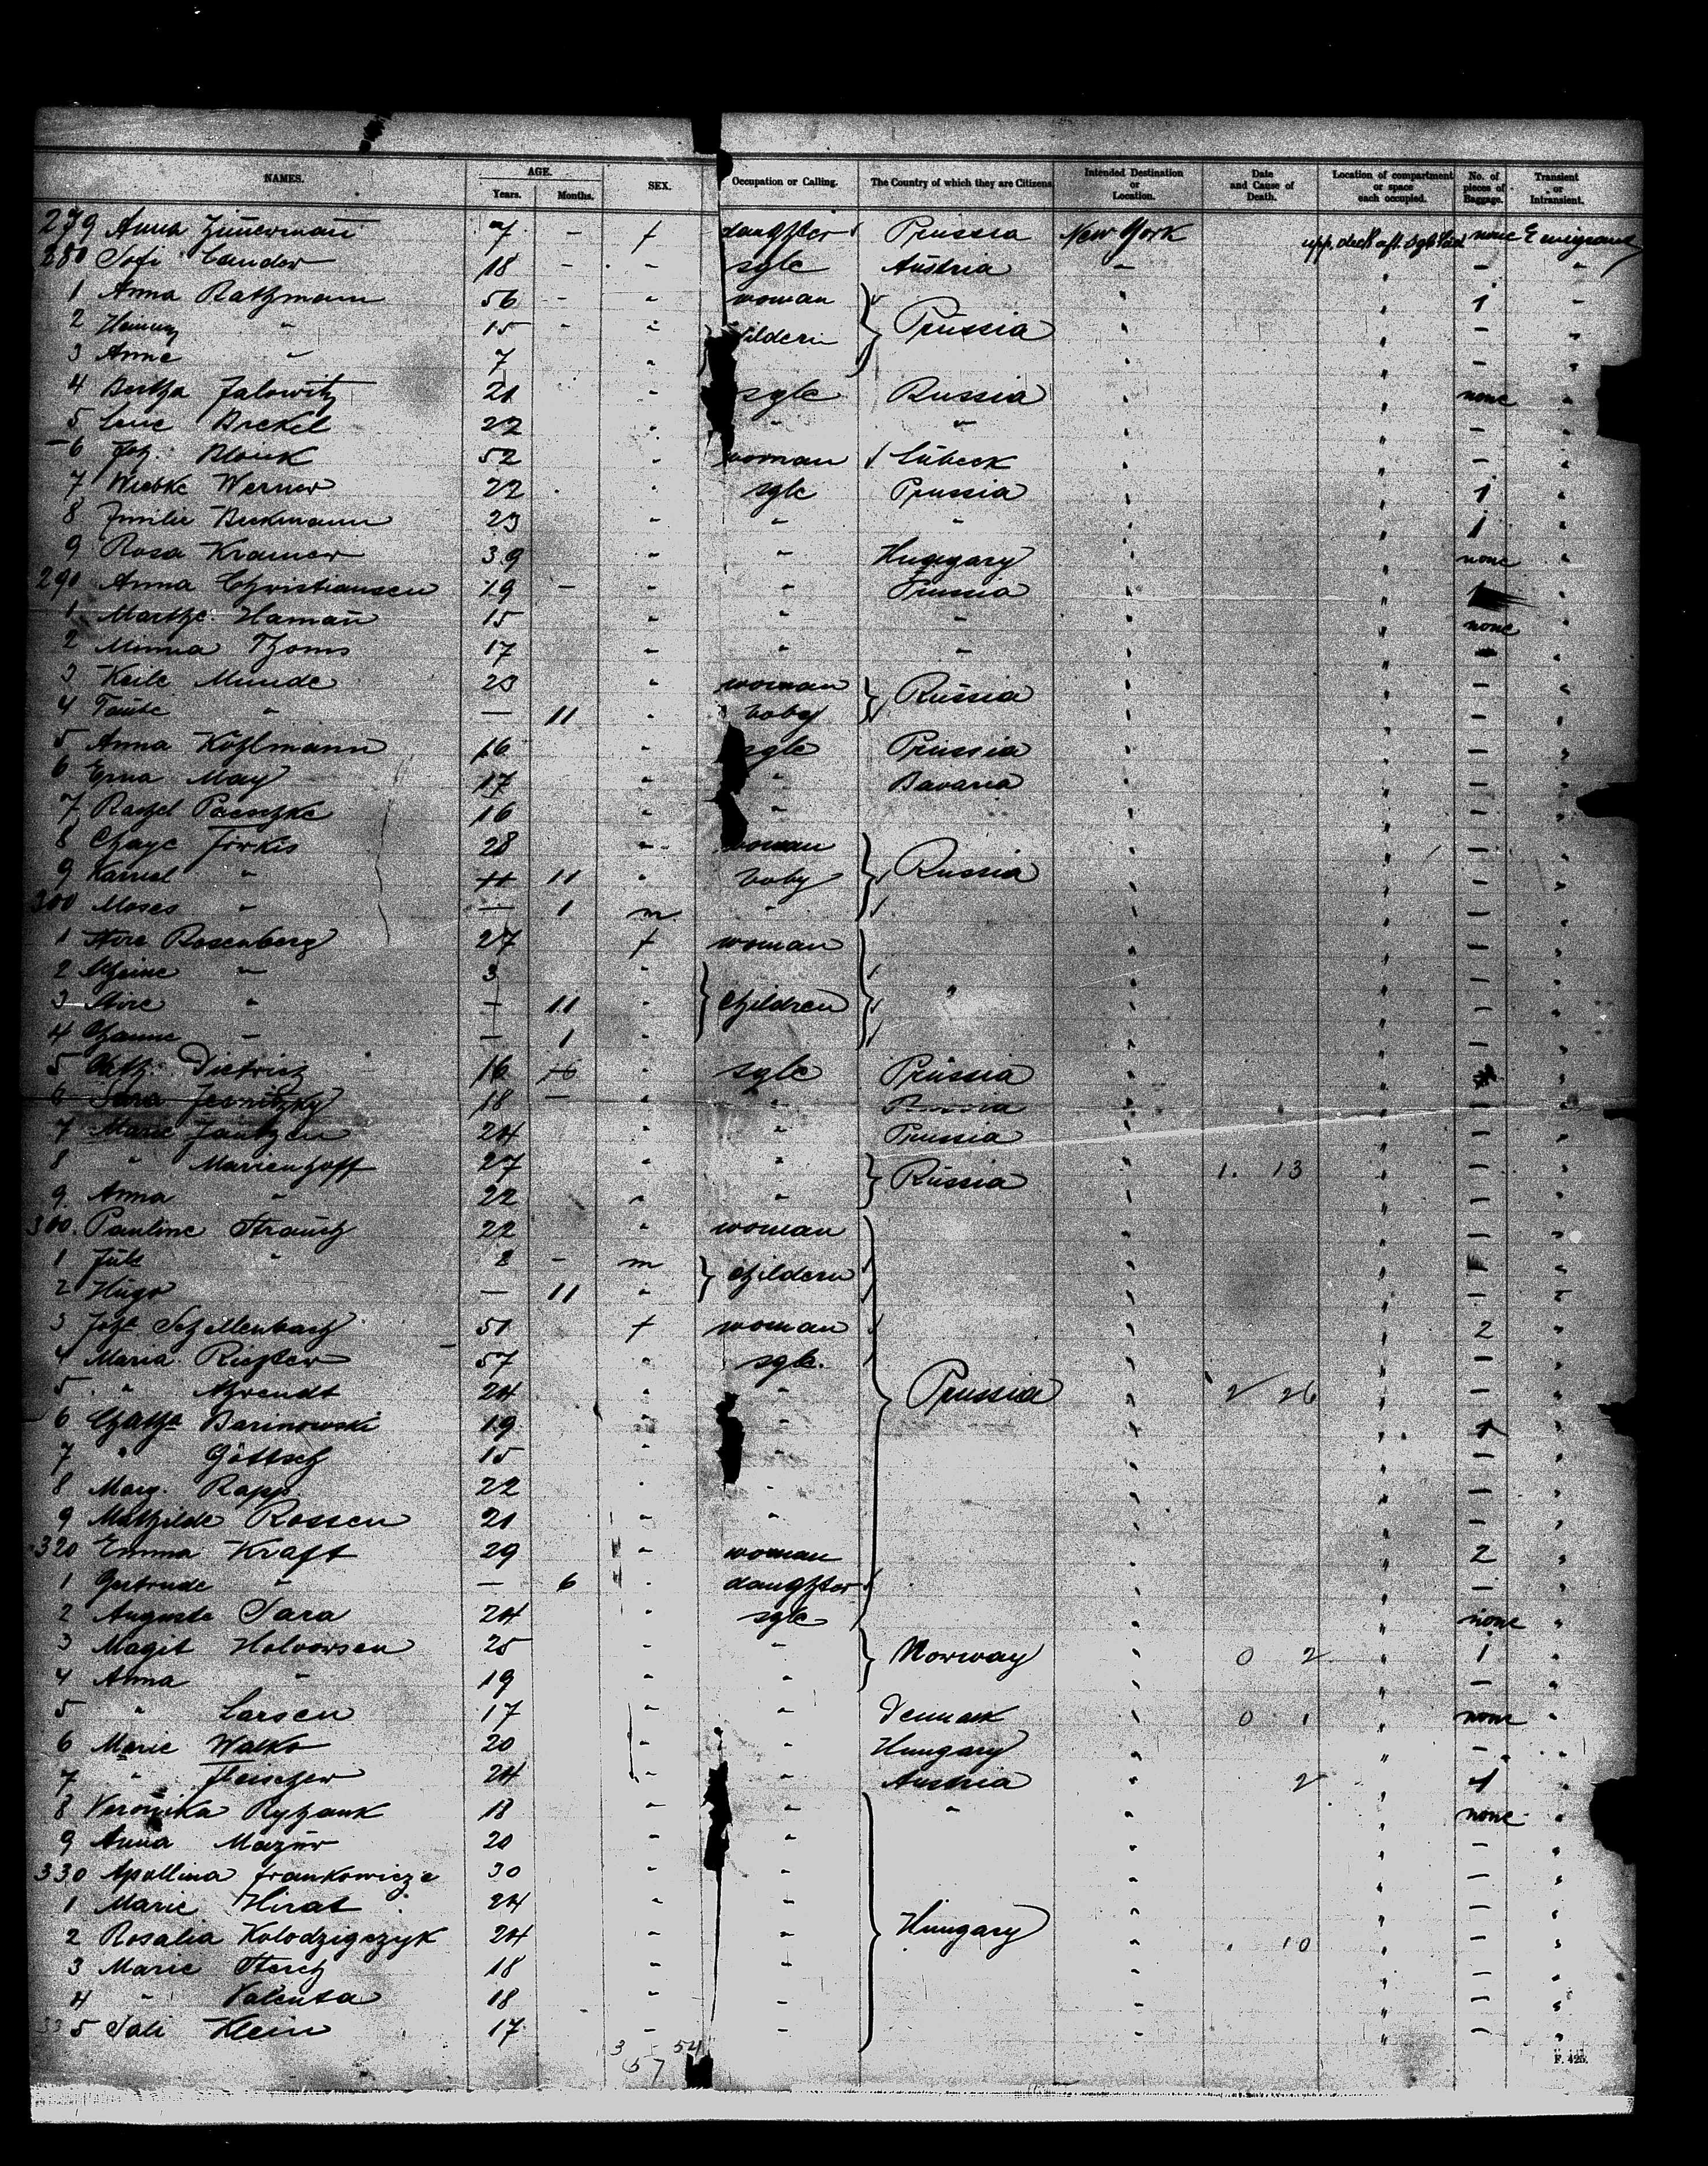 NAMES. AGE. Years. Months. SEX. Occupation or Calling. The Country of which they are Citizens Intended Destination or Location. Date and Cause of Death. Location of compartment or space each occupied. No. of pieces of Baggage. Transient or Intransient.
279 Anna Zimmermann 7 - f daughter Prussia New York upp. deck aft. none Emigrant
280 Sofi Cander 18 - - sgle Austria - " - "
1 Anna Rathmann 56 - " woman " " 1 "
2 " 15 - " childern Prussia " " - "
3 Anne " 7 " " " - "
4 Bertha Jalowitz 21 " sgle Russia " " none "
5 Brekel 22 " " " " " - "
6 Joh. Blonk 52 " woman Lübeck " " - "
7 Wiebke Werner 22 " sgle Prussia " " 1 "
8 Emilie Beckmann 23 " " " " " 1 "
9 Rosa Kramer 39 " " Hungary " " none "
290 Anna Christiansen 19 - " " Prussia " " "
1 Marthe Hamañ 15 " " " " " none "
2 Minna Thoms 17 " " " " " - "
3 Keile Munde 23 " woman Russia " " - "
4 Taube " — 11 " baby " " - "
5 Anna Kohlmann 16 " sgle Prussia " " - "
6 Erna May 17 " " Bavaria " " - "
7 Rachel 16 " " " " - "
8 Chaye Forkis 28 " woman " " - "
9 " 11 " baby Russia " " - "
300 Moses " — 1 m " " " - "
1 Rosenberg 27 f woman " " - "
2 " 3 " " " - "
3 " — 11 " Children " " " - "
4 " — 1 " " " - "
5 Cath. Dietrich 16 " sgle Prussia " " "
6 Sara 18 - " " Russia " " - "
7 Marie Jantzen 24 " " Prussia " " - "
8 " Marienhoff 27 " " Russia " 1. 13 " - "
9. Anna " 22 " " " " - "
300. Pauline Strauch 22 " woman " " - "
1 " 8 - m childern " " "
2 Hugo — 11 " " " - "
3 Joh. Schellenbach 51 f woman " " 2 "
4 Maria Richter 57 " sgle. " " - "
5. " Ahrendt 24 " " Prussia " 2 26 " - "
6 Barinowski 19 " " " " 1 "
7 " Göttsch 15 " " " " - "
8 Marg. Rapp. 22 " " " " - "
9 Mathilde Rossen 21 " " " " - "
320 Emma Kraft 29 " woman " " 2 "
1 Gertrude " — 6 " daughter " " - "
2 Auguste Sara 24 " sgle " " none "
3 Magit Halvorsen 25 " " Norway " 0 2 " 1 "
4 Anna " 19 " " " " - "
5 " Larsen 17 " " Denmark " 0 1 " none "
6 Marie Walko 20 " " Hungary " " - "
7 " Fleischer 24 " " Austria " 2 " 1 "
8 Veronika Ryhank 18 " " " " " none "
9 Anna Mazur 20 " " " " - "
330 Apollina Frankowicze 30 " " " " - "
1 Marie Hirat 24 " " " " - "
2 Rosalia Kolodzigczyk 24 " " Hungary " 10 " - "
3 Marie Storch 18 " " " " - "
4 " Valenta 18 " " " " - "
335 Sali Klein 17 " " " " - "
3 - 54
57
F. 425.